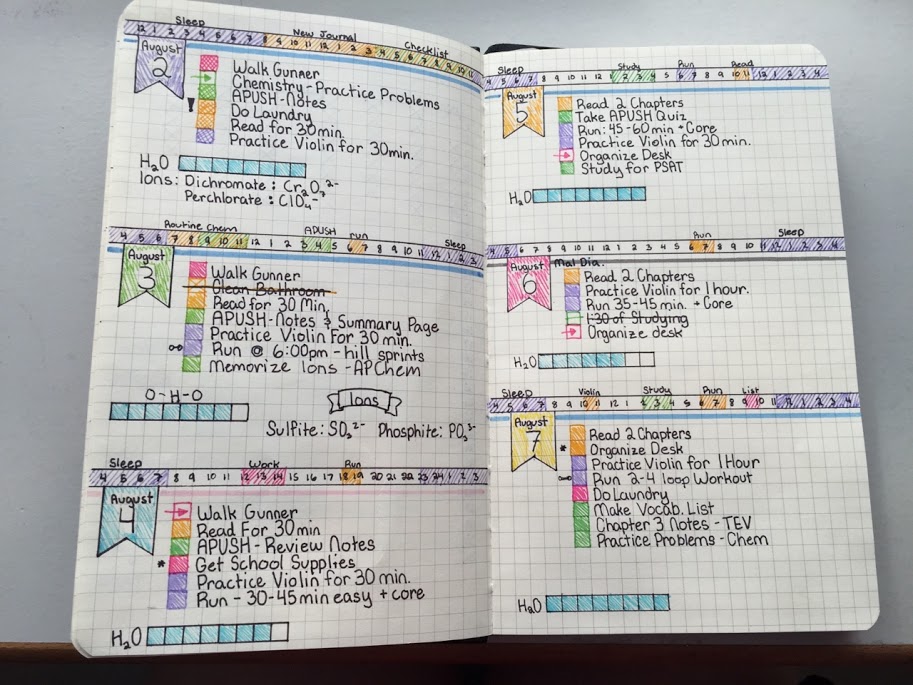 Sleep New Journal Checklist
August
2
Walk Gunner
Chemistry - Practice Problems
! APUSH - Notes
Do Laundry
Read for 30min.
Practice Violin for 30min.
H₂O
Ions: Dichromate: Cr₂O₇²⁻
Perchlorate: ClO₄⁻
Routine Chem APUSH run Sleep
4 5 6 7 8 9 10 11 12 1 2 3 4 5 6 7 8 9 10 11 12 1 2 3
August
3
Walk Gunner
Clean Bathroom
Read for 30 Min.
APUSH-Notes & Summary Page
Practice Violin For 30 min.
Run @ 6:00pm - hill sprints
Memorize Ions - APChem
O-H-O
Ions
Sulfite: SO₃²⁻ Phosphite: PO₃³⁻
Sleep Work Run
4 5 6 7 8 9 10 11 12 13 14 15 16 17 18 19 20 21 22 23 24 1 2 3
August
4
Walk Gunner
Read For 30 min
APUSH - Review Notes
* Get School Supplies
Practice Violin for 30 min.
Run - 30-45 min easy + core
H₂O
Sleep Study Run Read
4 5 6 7 8 9 10 11 12 1 2 3 4 5 6 7 8 9 10 11 12 1 2 3 4
August
5
Read 2 Chapters
Take APUSH Quiz
Run: 45-60min + Core
Practice Violin for 30 min.
Organize Desk
Study for PSAT
H₂O
Run Sleep
4 5 6 7 8 9 10 11 12 1 2 3 4 5 6 7 8 9 10 11 12 1 2 3 4
August
6
Mal Dia.
Read 2 Chapters
Practice Violin for 1 hour.
Run 35-45 min. + Core
1:30 of Studying
Organize desk
H₂O
Sleep Violin Study Run List
4 5 6 7 8 9 10 11 12 1 2 3 4 5 6 7 8 9 10 11 12 1 2 3 4
August
7
Read 2 Chapters
* Organize Desk
Practice Violin for 1 Hour
Run 2-4 loop Workout
Do Laundry
Make Vocab. List
Chapter 3 Notes - TEV
Practice Problems - Chem
H₂O